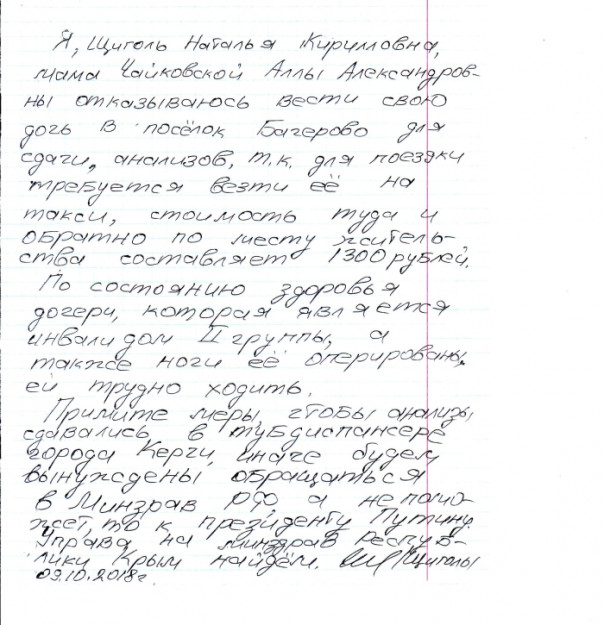 Я, Щиголь Наталья Кирилловна,
мама Чайковской Аллы Александров-
ны отказываюсь вести свою
дочь в посёлок Багерово для
сдачи, анализов, т.к. для поездки
требуется везти её на
такси, стоимость туда и
обратно по месту житель-
ства составляет 1300 рублей.
По состоянию здоровья
дочери, которая является
инвалидом II группы, а
также ноги её оперированы,
ей трудно ходить.
Примите меры, чтобы анализы
сдавались в тубдиспансере
города Керчи, иначе будем
вынуждены обращаться
в Минздрав РФ, а не помо-
жет, то к президенту Путину.
Управа на минздрав Респуб-
лики Крым найдём. Щиголь
09.10.2018г.